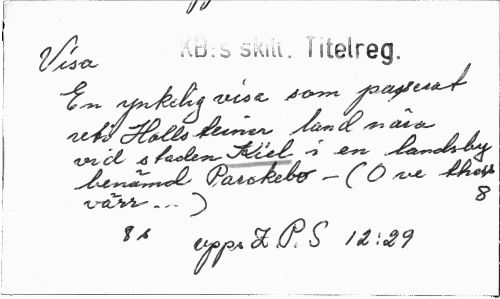 KB:s skill. Titelreg.
Visa
En ynkelig visa som passerat
uti Hollsteiner land nära
vid staden Kiel i en landsby
benämd Parckebo - (O ve thess
värr ... )
8
8 s
upps Z P.S 12:29